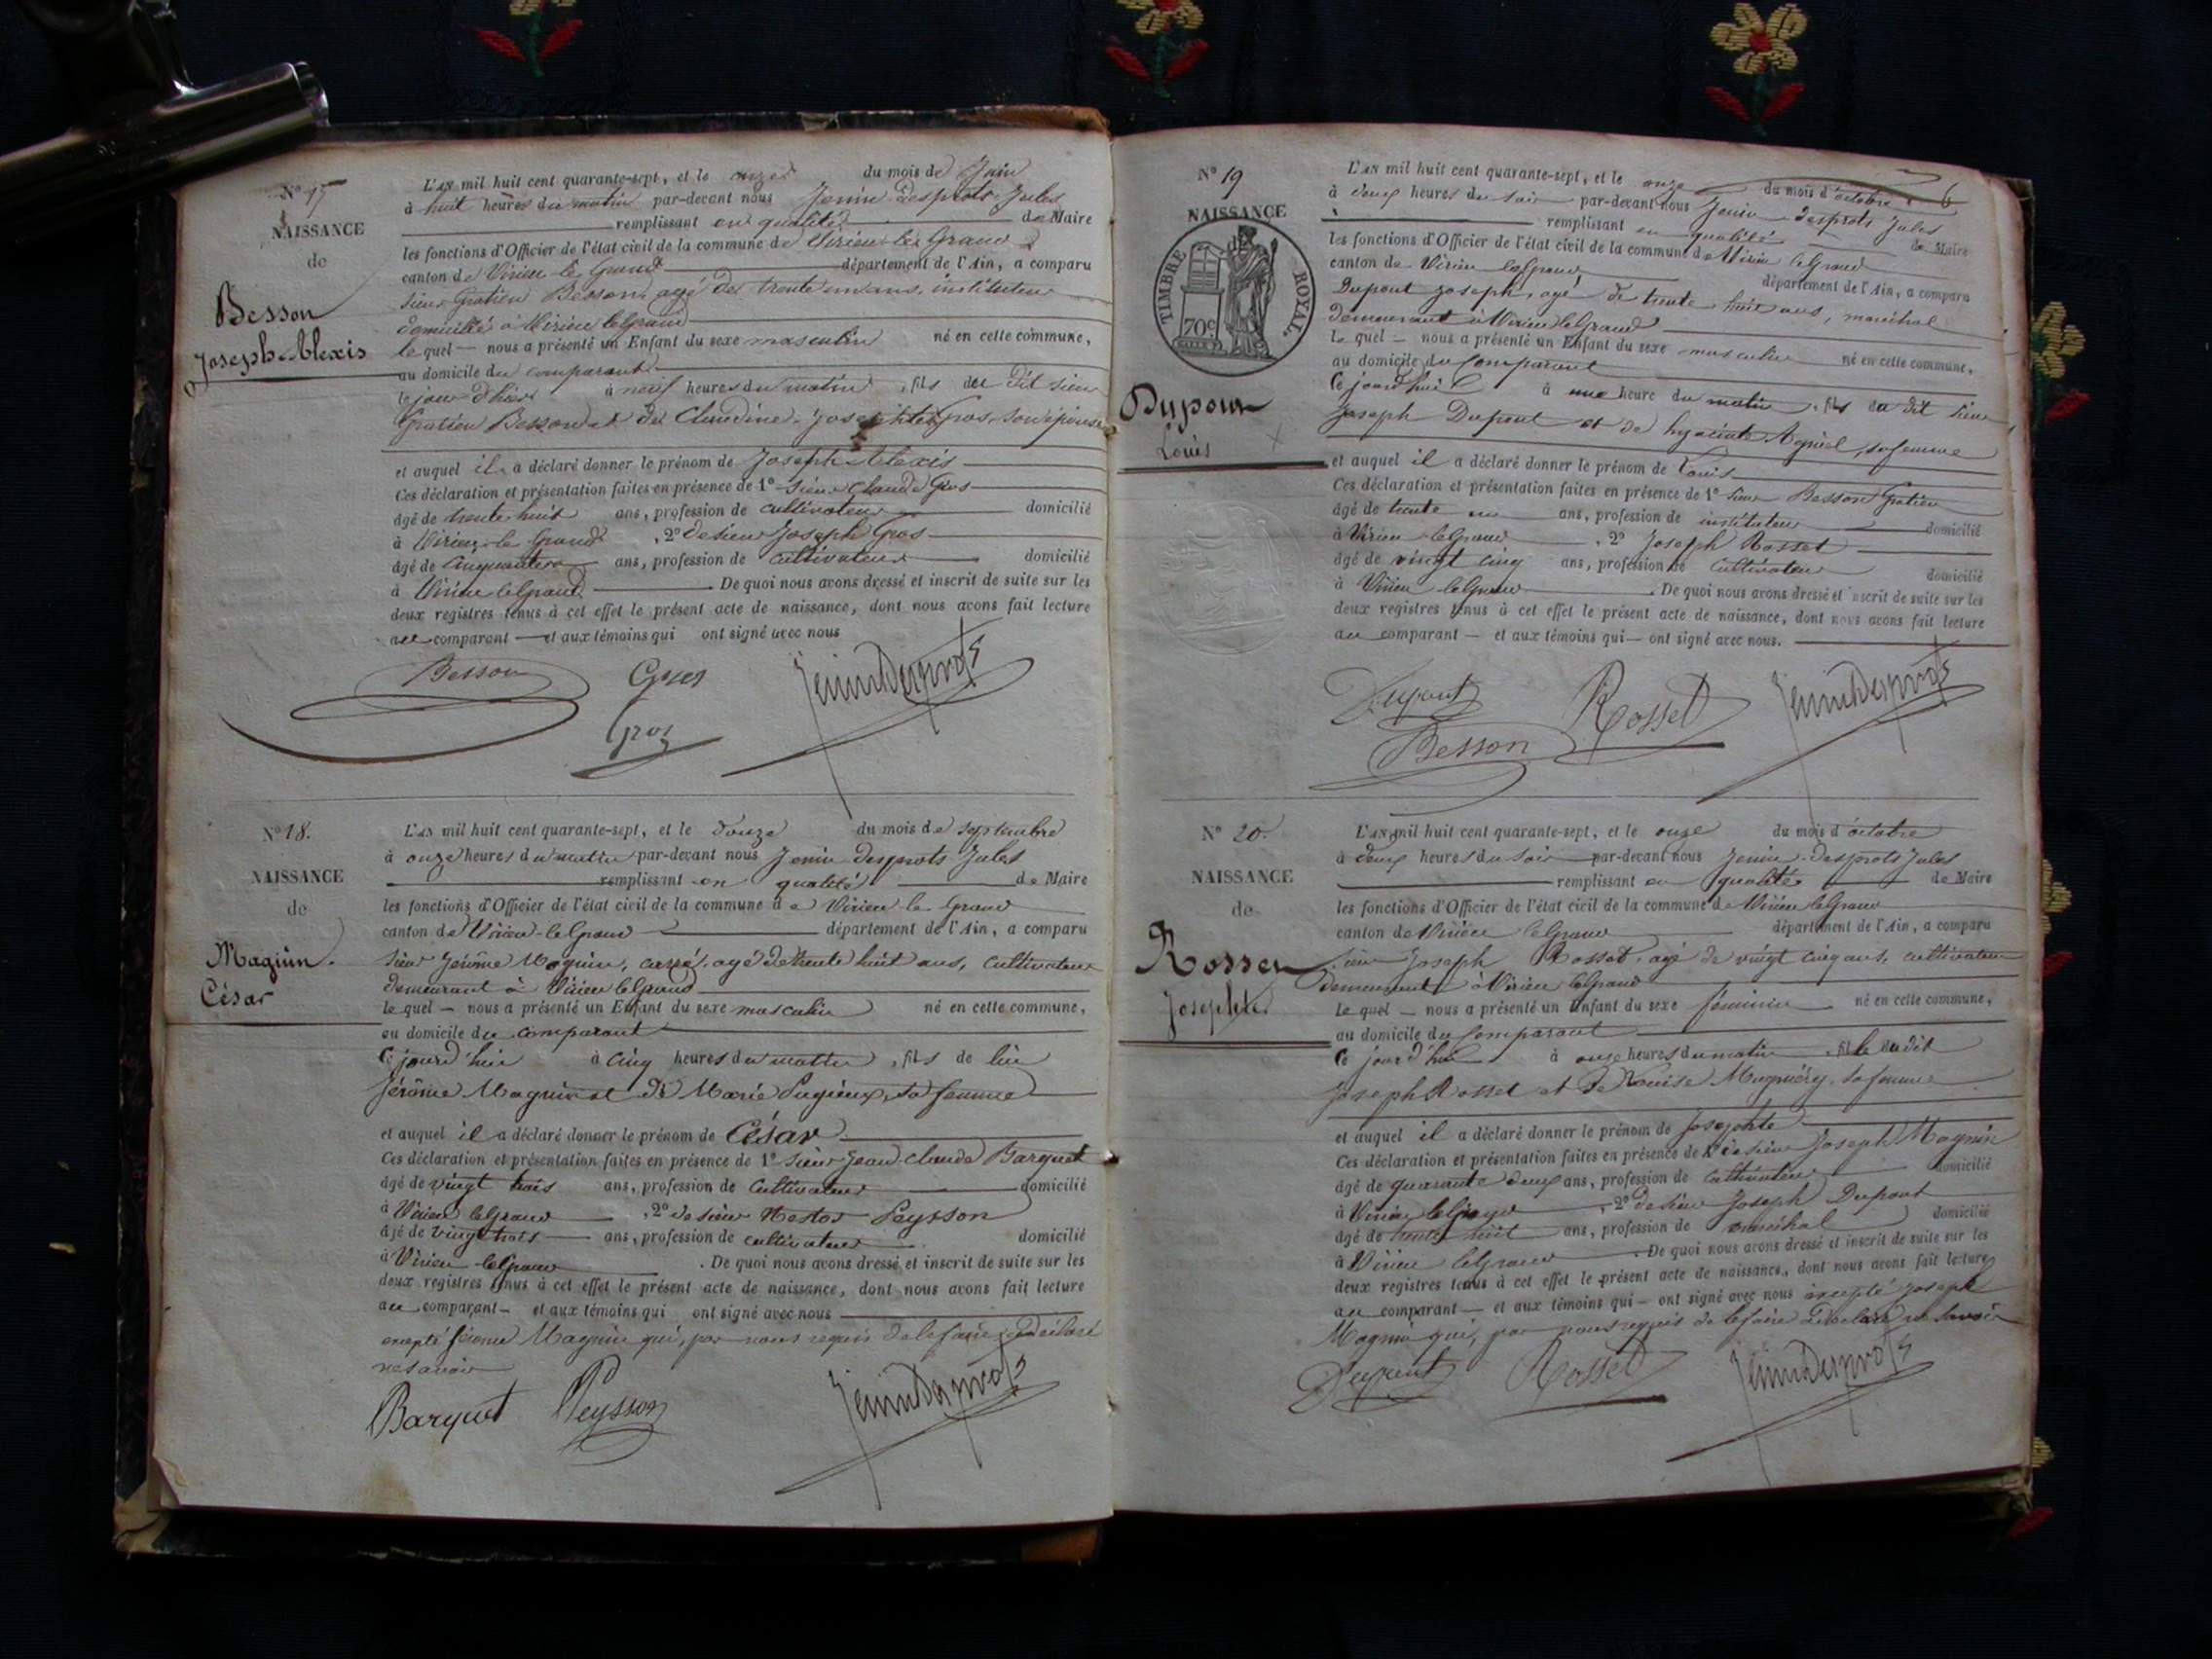 N° 17
NAISSANCE
de
Besson
Joseph Alexis
L'AN mil huit cent quarante-sept, et le onze du mois de Juin
à huit heures du matin par-devant nous Jenin Desprots Jules
remplissant en qualité de Maire
les fonctions d'Officier de l'état civil de la commune de Virieu le Grand
canton de Virieu le Grand département de l'Ain, a comparu
sieur Gratien Besson, agé de trente un ans, instituteur
domicilié à Virieu le Grand
le quel nous a présenté un Enfant du sexe masculin né en cette commune,
au domicile du comparant
le jour d'hier à neuf heures du matin, fils du dit sieur
Gratien Besson et de Claudine Josephte Gros, son épouse
et auquel il a déclaré donner le prénom de Joseph Alexis
Ces déclaration et présentation faites en présence de 1° sieur Claude Gros
âgé de trente huit ans, profession de cultivateur domicilié
à Virieu le Grand, 2° de sieur Joseph Gros
âgé de cinquante ans, profession de cultivateur domicilié
à Virieu le Grand. De quoi nous avons dressé et inscrit de suite sur les
deux registres tenus à cet effet le présent acte de naissance, dont nous avons fait lecture
au comparant et aux témoins qui ont signé avec nous
Besson Gros JeninDesprots
Gros
N° 18.
NAISSANCE
de
Magnin.
César
L'AN mil huit cent quarante-sept, et le douze du mois de septembre
à onze heures du matin par-devant nous Jenin Desprots Jules
remplissant en qualité de Maire
les fonctions d'Officier de l'état civil de la commune de Virieu le Grand
canton de Virieu-le Grand département de l'Ain, a comparu
sieur Jérôme Magnin, agé de trente huit ans, cultivateur
demeurant à Virieu le Grand
le quel nous a présenté un Enfant du sexe masculin né en cette commune,
au domicile du comparant
Ce jourd'hui à cinq heures du matin, fils de lui
Jérôme Magnin et de Marie Sugieux, sa femme
et auquel il a déclaré donner le prénom de César
Ces déclaration et présentation faites en présence de 1° sieur Jean Claude Barquet
âgé de vingt trois ans, profession de cultivateur domicilié
à Virieu le Grand, 2° de sieur Nestor Peysson
âgé de vingt trois ans, profession de cultivateur domicilié
à Virieu le Grand. De quoi nous avons dressé et inscrit de suite sur les
deux registres tenus à cet effet le présent acte de naissance, dont nous avons fait lecture
au comparant et aux témoins qui ont signé avec nous
excepté Jérome Magnin qui, par nous requis de le faire, a déclaré
ne savoir
Barquet Peysson JeninDesprots
6
N° 19
NAISSANCE
TIMBRE ROYAL.
70c
Dupont
Louis
L'AN mil huit cent quarante-sept, et le onze du mois d'octobre
à deux heures du soir par-devant nous Jenin Desprots Jules
remplissant en qualité de Maire
les fonctions d'Officier de l'état civil de la commune de Virieu le Grand
canton de Virieu le Grand département de l'Ain, a comparu
Dupont Joseph, agé de trente huit ans, maréchal
demeurant à Virieu le Grand
le quel nous a présenté un Enfant du sexe masculin né en cette commune,
au domicile du comparant
Ce jourd'hui à une heure du matin, fils du dit sieur
Joseph Dupont et de hyacinte Agniel, sa femme
et auquel il a déclaré donner le prénom de Louis
Ces déclaration et présentation faites en présence de 1° sieur Besson Gratien
âgé de trente un ans, profession de instituteur domicilié
à Virieu le Grand, 2° Joseph Rosset
âgé de vingt cinq ans, profession de cultivateur domicilié
à Virieu le Grand. De quoi nous avons dressé et inscrit de suite sur les
deux registres tenus à cet effet le présent acte de naissance, dont nous avons fait lecture
au comparant et aux témoins qui ont signé avec nous.
Dupont Rosset JeninDesprots
Besson
N° 20.
NAISSANCE
de
Rosset
Josephte
L'AN mil huit cent quarante-sept, et le onze du mois d'octobre
à deux heures du soir par-devant nous Jenin Desprots Jules
remplissant en qualité de Maire
les fonctions d'Officier de l'état civil de la commune de Virieu le Grand
canton de Virieu le Grand département de l'Ain, a comparu
sieur Joseph Rosset, agé de vingt cinq ans, cultivateur
demeurant à Virieu le Grand
Le quel nous a présenté un Enfant du sexe féminin né en cette commune,
au domicile du comparant
Ce jourd'hui à onze heures du matin, fille du dit
Joseph Rosset et de Louise Magniéry, sa femme
et auquel il a déclaré donner le prénom de Josephte
Ces déclaration et présentation faites en présence de 1° de sieur Joseph Magnin
âgé de quarante deux ans, profession de cultivateur domicilié
à Virieu le Grand, 2° de sieur Joseph Dupont
âgé de trente huit ans, profession de maréchal domicilié
à Virieu le Grand. De quoi nous avons dressé et inscrit de suite sur les
deux registres tenus à cet effet le présent acte de naissance, dont nous avons fait lecture
au comparant et aux témoins qui ont signé avec nous excepté Joseph
Magnin qui, par nous requis de le faire a déclaré ne savoir
Dupont Rosset JeninDesprots